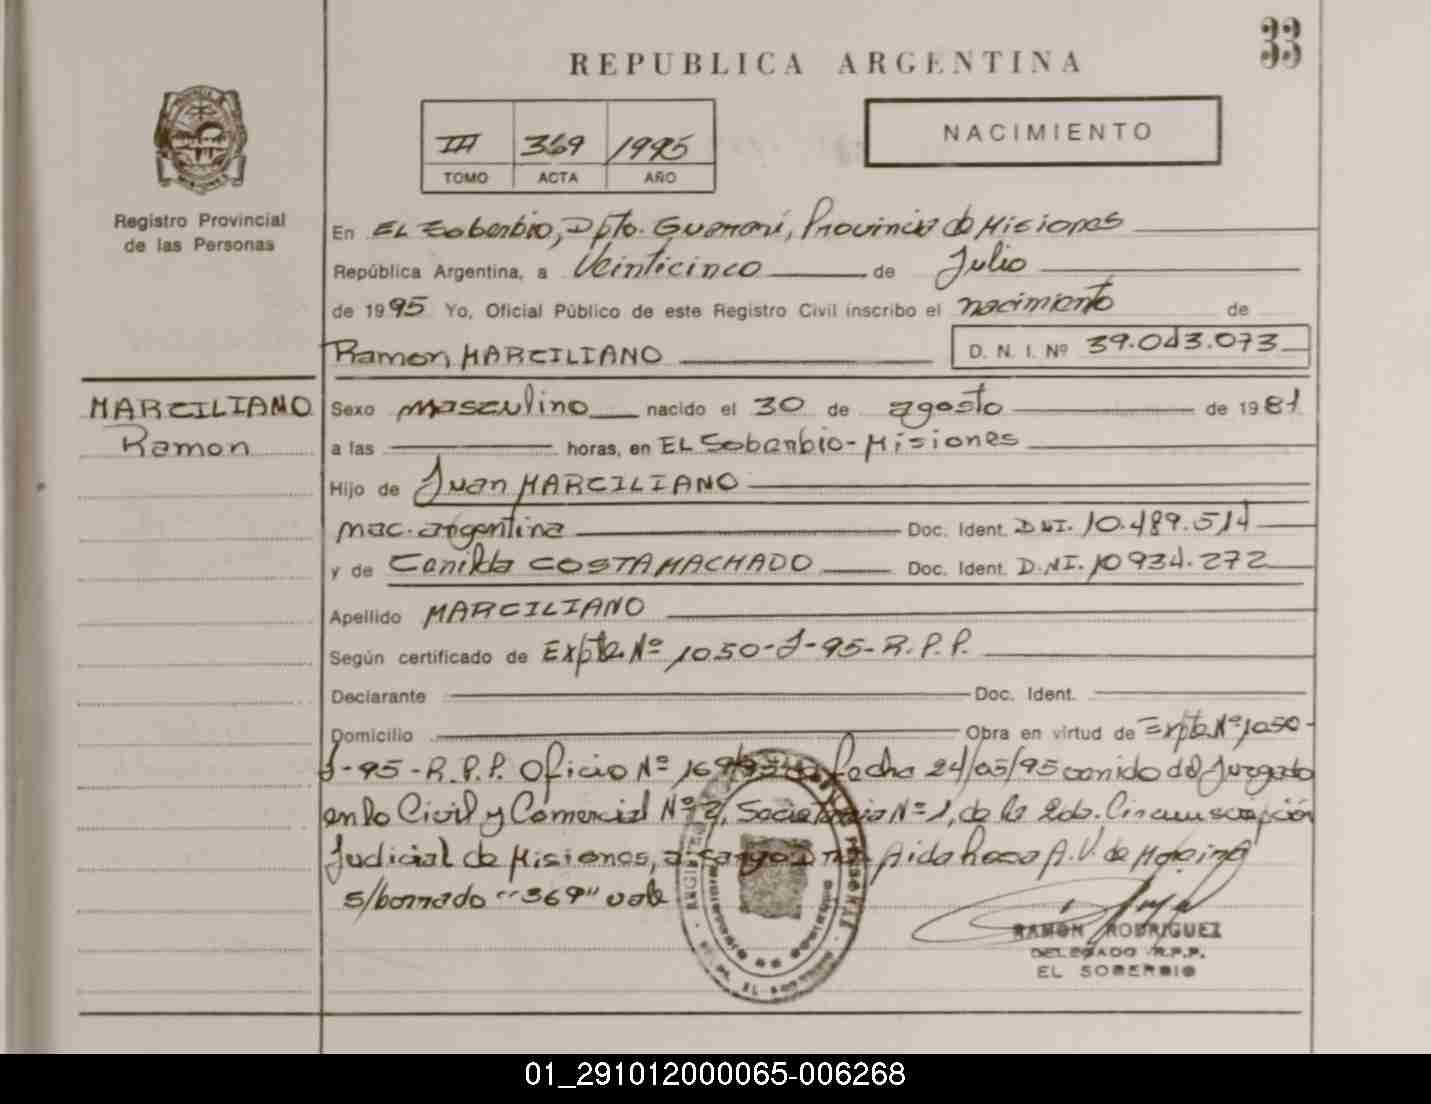 33
REPUBLICA ARGENTINA
III 369 1995
TOMO ACTA AÑO
NACIMIENTO
Registro Provincial
de las Personas
En EL Soberbio, Dpto. Guaraní, Provincia de Misiones
República Argentina, a Veinticinco de Julio
de 1995 Yo, Oficial Público de este Registro Civil inscribo el nacimiento de
Ramon MARCILIANO D. N. I. Nº 39.043.073
MARCILIANO
Ramon
Sexo masculino nacido el 30 de agosto de 1981
a las horas, en EL Soberbio-Misiones
Hijo de Juan MARCILIANO
nac. argentina Doc. Ident. DNI. 10.489.514
y de Canilda COSTA MACHADO Doc. Ident. D.NI. 10934.272
Apellido MARCILIANO
Según certificado de Expte. Nº 1050-J-95-R.P.P.
Declarante Doc. Ident.
Domicilio Obra en virtud de Expte. Nº 1050-
J-95-R.P.P. Oficio Nº fecha 24/05/95 venido del Juzgado
en lo Civil y Comercial Nº 2, Secretaria Nº 1, de la 2da. Circunscripción
Judicial de Misiones, a cargo Dra. Aida Rosa A.V. de
s/borrado "369" vale
RAMON RODRIGUEZ
DELEGADO R.P.P.
EL SOBERBIO
01_291012000065-006268